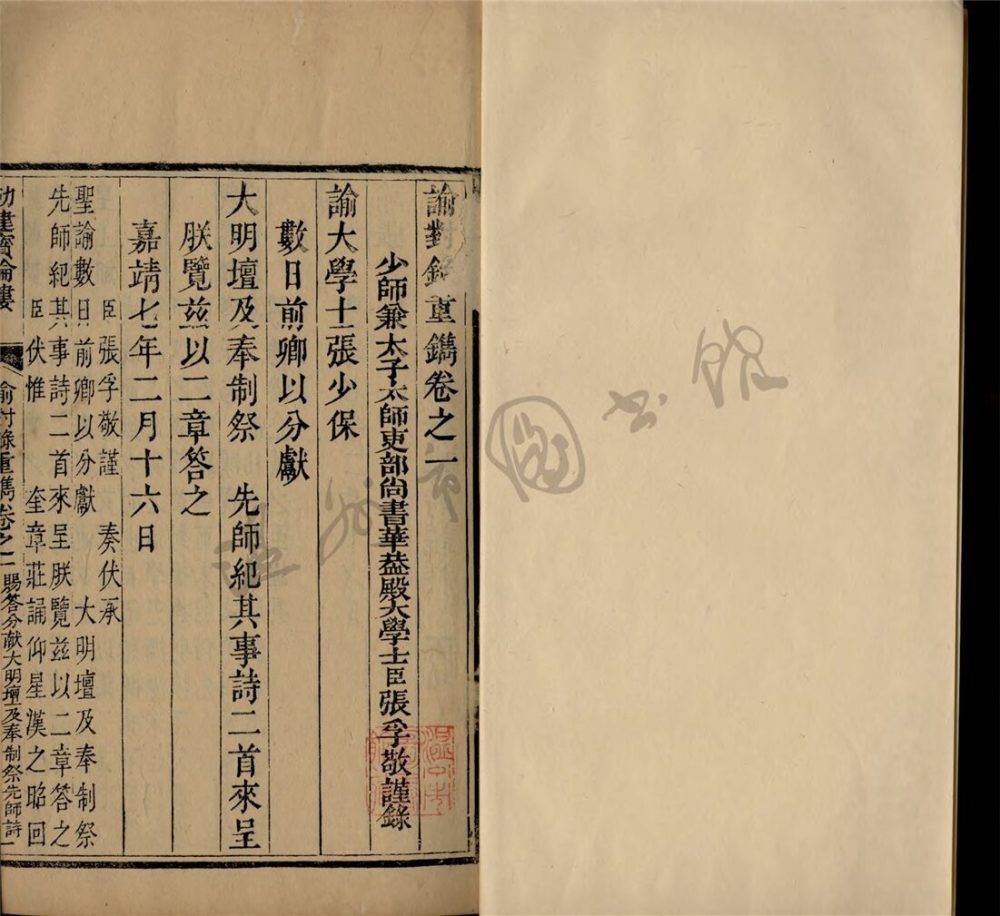 諭對錄重鐫卷之一
少師兼太子太師吏部尚書華蓋殿大學士臣張孚敬謹錄
諭大學士張少保
數日前卿以分獻
大明壇及奉制祭　先師紀其事詩二首來呈
朕覽茲以二章答之
嘉靖七年二月十六日
臣張孚敬謹　奏伏承
聖諭數日前卿以分獻　大明壇及奉制祭
先師紀其事詩二首來呈朕覽茲以二章答之
臣伏惟　奎章莊誦仰星漢之昭回
勅建寶綸樓
諭對錄重鐫卷之一　賜答分献大明壇及奉制祭先師詩一
溫州市圖書館